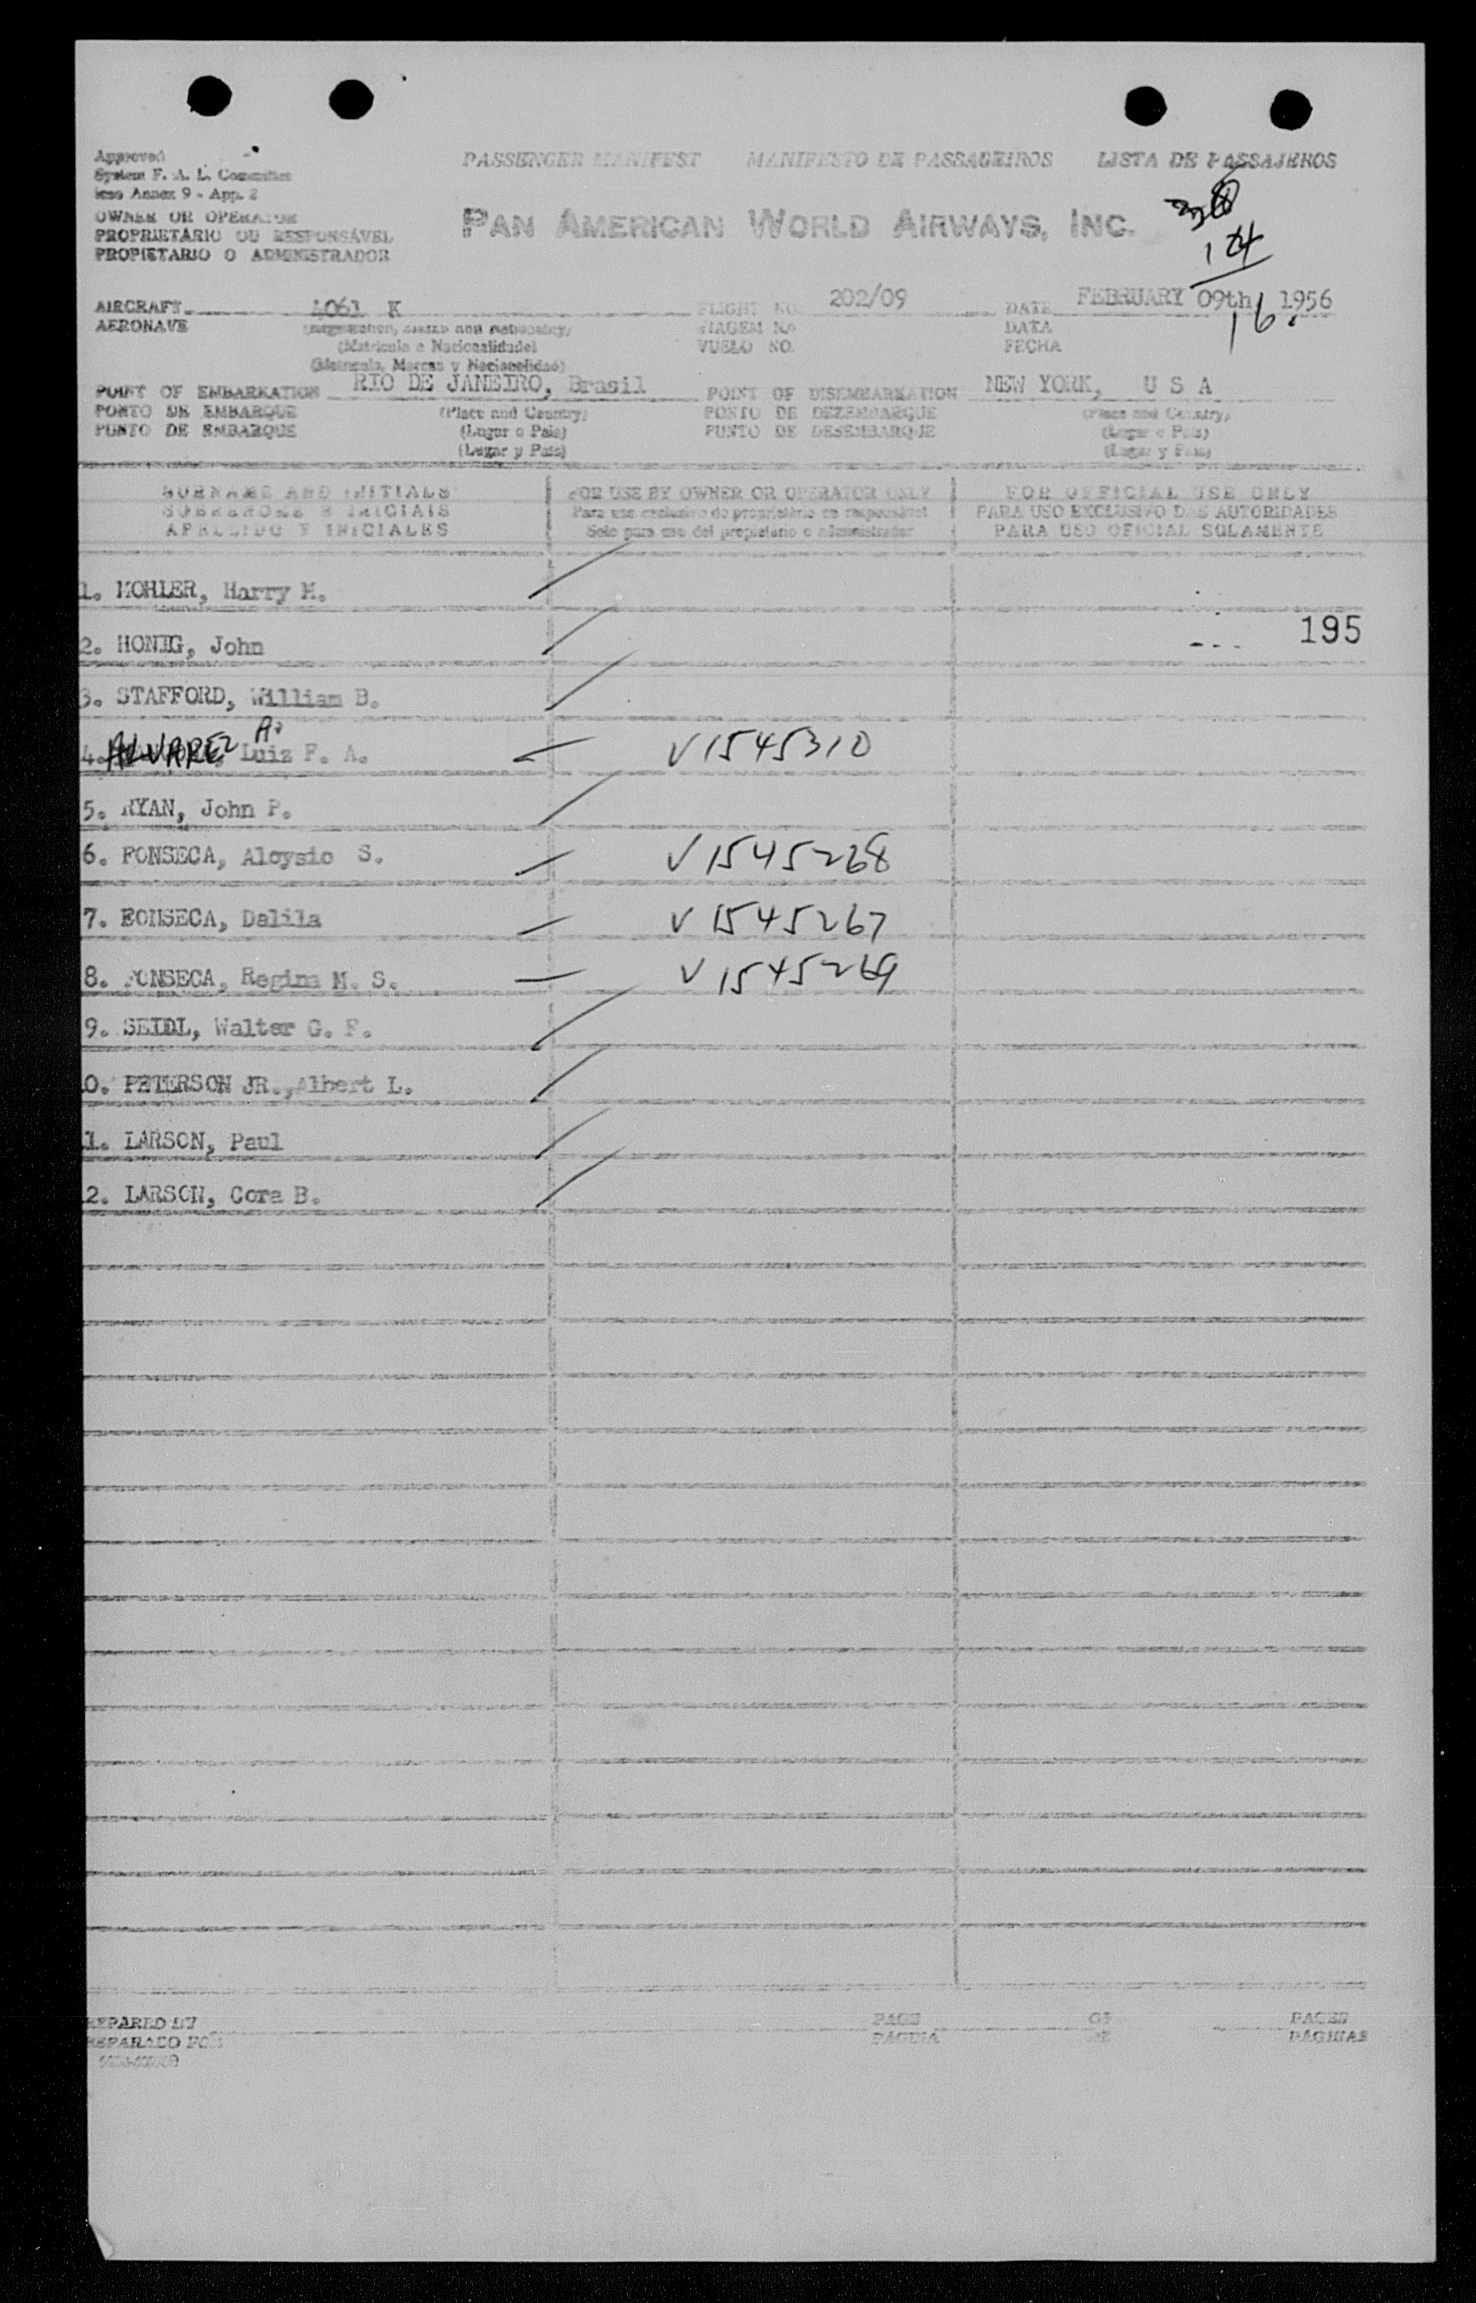 PASSENGER MANIFEST MANIFESTO DE PASSAGEIROS LISTA DE PASSAJEROS
Approved
System F. A. L. Committee
Icao Annex 9 - App. 2
OWNER OR OPERATOR
PROPRIETÁRIO OU RESPONSÁVEL
PROPIETARIO O ADMINISTRADOR
PAN AMERICAN WORLD AIRWAYS, INC.
AIRCRAFT 4061 K FLIGHT NO. 202/09 DATE FEBRUARY 09th 1956
16.
AERONAVE VIAGEM No. DATA
VUELO NO. FECHA
(Matrícula e Nacionalidade)
(Matricula, Marcas y Nacionalidad)
POINT OF EMBARKATION RIO DE JANEIRO, Brasil POINT OF DISEMBARKATION NEW YORK, U S A
PONTO DE EMBARQUE (Place and Country) PONTO DE DEZEMBARQUE (Place and Country)
PUNTO DE EMBARQUE (Lugar e País) PUNTO DE DESEMBARQUE (Lugar e País)
(Lugar y País) (Lugar y País)
SURNAME AND INITIALS FOR USE BY OWNER OR OPERATOR ONLY FOR OFFICIAL USE ONLY
SOBRENOME E INICIAIS Para uso exclusivo do proprietário ou responsável PARA USO EXCLUSIVO DAS AUTORIDADES
APELLIDO Y INICIALES Solo para uso del propietario o administrador PARA USO OFICIAL SOLAMENTE
1. MOHLER, Harry M.
2. HONIG, John 195
3. STAFFORD, William B.
4. ALVAREZ A. Luiz F. A. V1545310
5. RYAN, John P.
6. FONSECA, Aloysio S. V1545268
7. FONSECA, Dalila V1545267
8. FONSECA, Regina M. S. V1545269
9. SEIDL, Walter G. F.
0. PETERSON JR., Albert L.
1. LARSON, Paul
2. LARSON, Cora B.
REPARED BY PAGE OF PAGES
REPARADO POR PÁGINA DE PÁGINAS